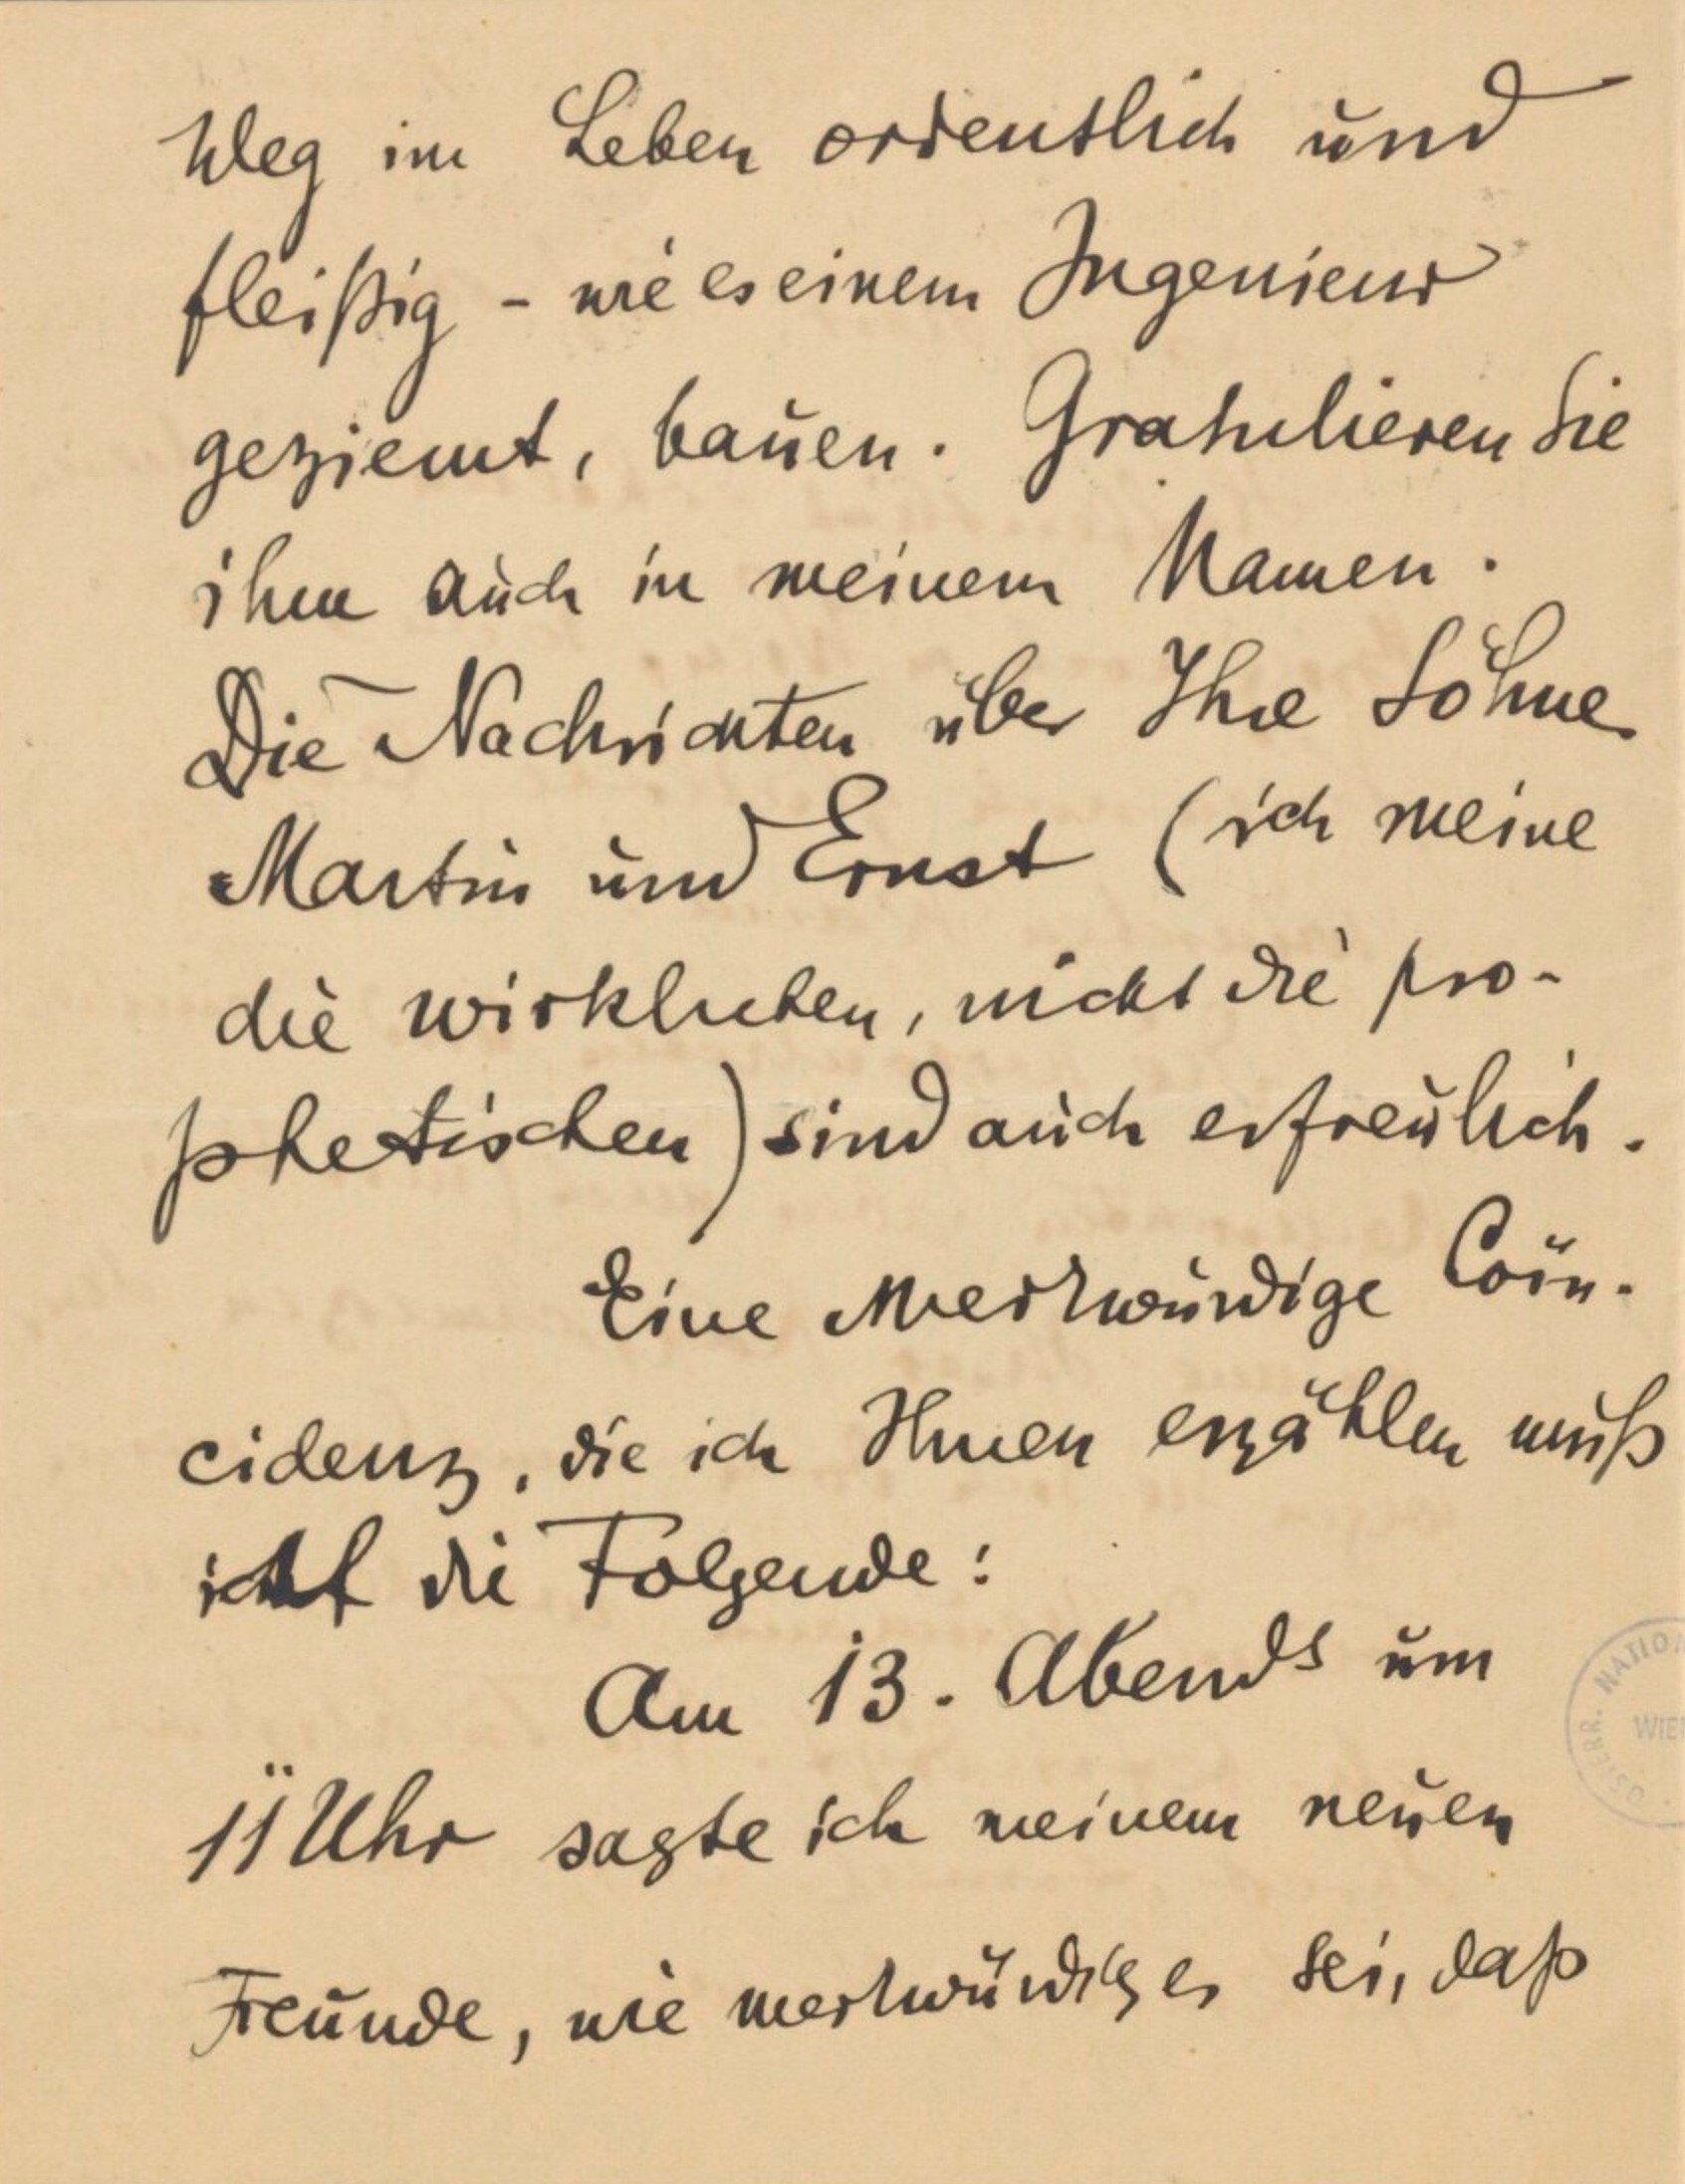 Weg im Leben ordentlich und
fleißig - wie es einem Ingenieur
geziemt, bauen. Gratulieren Sie
ihm auch in meinem Namen.
Die Nachrichten über Ihre Söhne
Martin und Ernst (ich meine
die wirklichen, nicht die pro-
phetischen) sind auch erfreulich.
Eine merkwürdige Coïn-
cidenz, die ich Ihnen erzählen muß
ist die Folgende:
Am 13. Abends um
11 Uhr sagte ich meinem neuen
Freunde, wie merkwürdig es sei, daß
ÖSTERR. NATIO
WIE